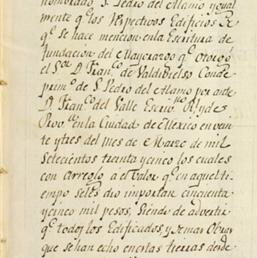 nombrado S. Pedro del Alamo y ygual
mente q.e los respectivos Edificios de
q.e se hace mencion en la Escritura de
fundacion del Mayorazgo q.e otorgó
el S.or D. Fran.co de Valdivielso Conde
prim.o de S. Pedro del Alamo por ante
D. Fran.co del Valle Escriv.no R.l y de
Prov.a en la Ciudad de Mexico en vein
te y tres del mes de Marzo de mil
setecientos treinta y cinco los cuales
con arreglo a el valor q.e en aquel ti
empo se les dio importan cinquenta
y cinco mil pesos, Siendo de adverti
q.e todos los Edificados y demas Obras
que se han echo en estas tierras desde